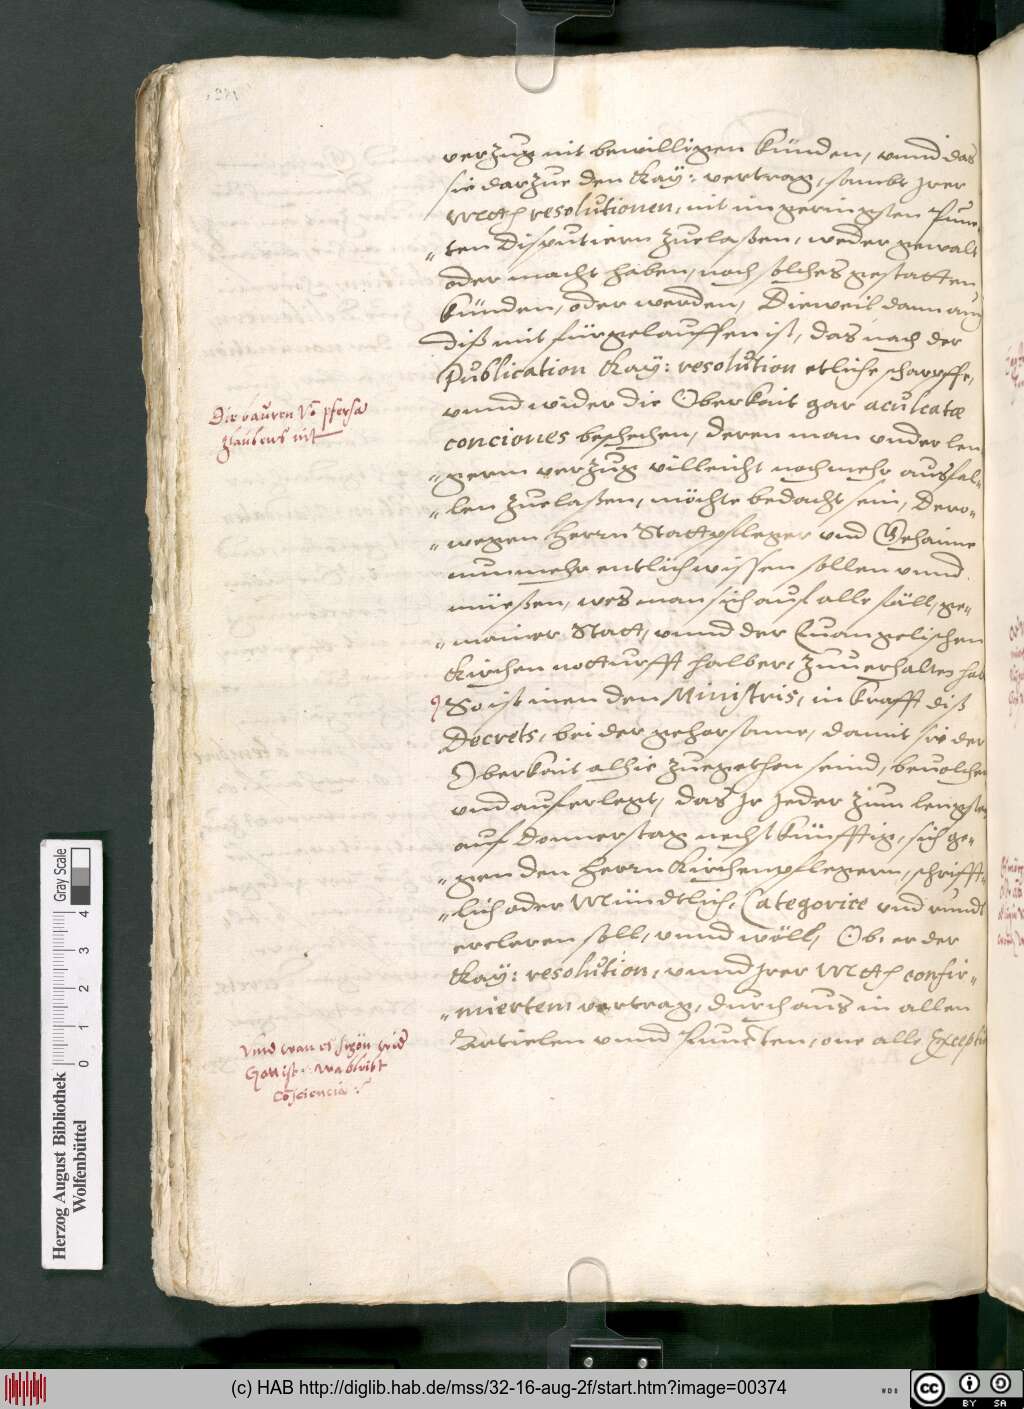 verzug nit bewilligen künden, vnnd das
sie darzue den Kay: vertrag, sambt jrer
Mtt: resolutionen, nit im geringsten Punc-
ten Disputiern zuelaßen, weder gewalt
oder macht haben, noch solches gestatten
künden, oder werden, Dieweil dann auch
diß mit fürgelauffen ist, das nach der
Publication Kay: resolution etliche scharpffe,
vnnd wider die Oberkait gar aculeatæ
conciones beschehen, deren man vnder len-
germ verzug villeicht noch mehr ausfal-
len zuelaßen, möchte bedacht sein, Dero-
wegen herrn Stattpfleger vnd Gehaime
nunmehr entlich wissen sollen vnnd
müeßen, wes man sich auf alle fäll, ge-
mainer Statt, vnnd der Euangelischen
Kirchen notturfft halber, zuuerhalten hab
So ist inen den Ministris, in krafft diß
Decrets, bei der gehorsame, damit sie der
Oberkait alhie zuegethon seind, beuolchen
vnd auferlegt, das jr jeder zum lengsten
auf Donnerstag nechst künfftig, sich ge-
gen den herrn Kirchenpflegern, schrifft-
lich oder Mündtlich, Categorice vnd rundt
ercleren soll, vnnd wöll, Ob er der
Kay: resolution, vnnd jrer Mtt: confir-
miertem vertrag, durchaus in allen
Articlen vnnd Puncten, one alle Exceptio
Die bauren Vō pfersa
glaubens nit
Vnd wan es schön wid
Gott ist: wa bleibt
Cōsciencia:
Herzog August Bibliothek
Wolfenbüttel
0 1 2 3 4
Gray Scale
(c) HAB http://diglib.hab.de/mss/32-16-aug-2f/start.htm?image=00374
WDB
cc BY SA